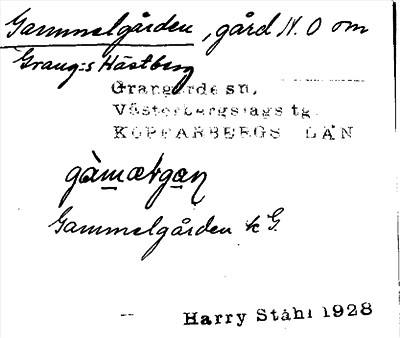 Gammelgården, gård N.O om
Grang:s Hästberg
Grangärde sn,
Västerbergslags tg.
KOPPARBERGS LÄN
gàmætgaṇ
Gammelgården k G.
Harry Ståhl 1928